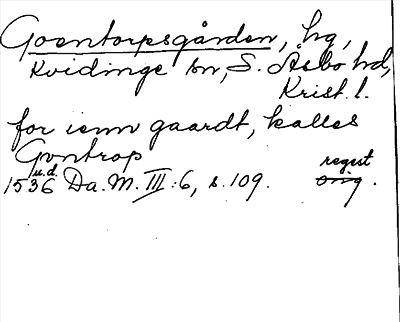 Goentorpsgården, hg,
Kvidinge sn, S. Åsbo hd,
Krist. l.
for ienn gaardt, kalles
Gvntrop
u.d. regest
1536 Da. M. III:6, s. 109. orig.